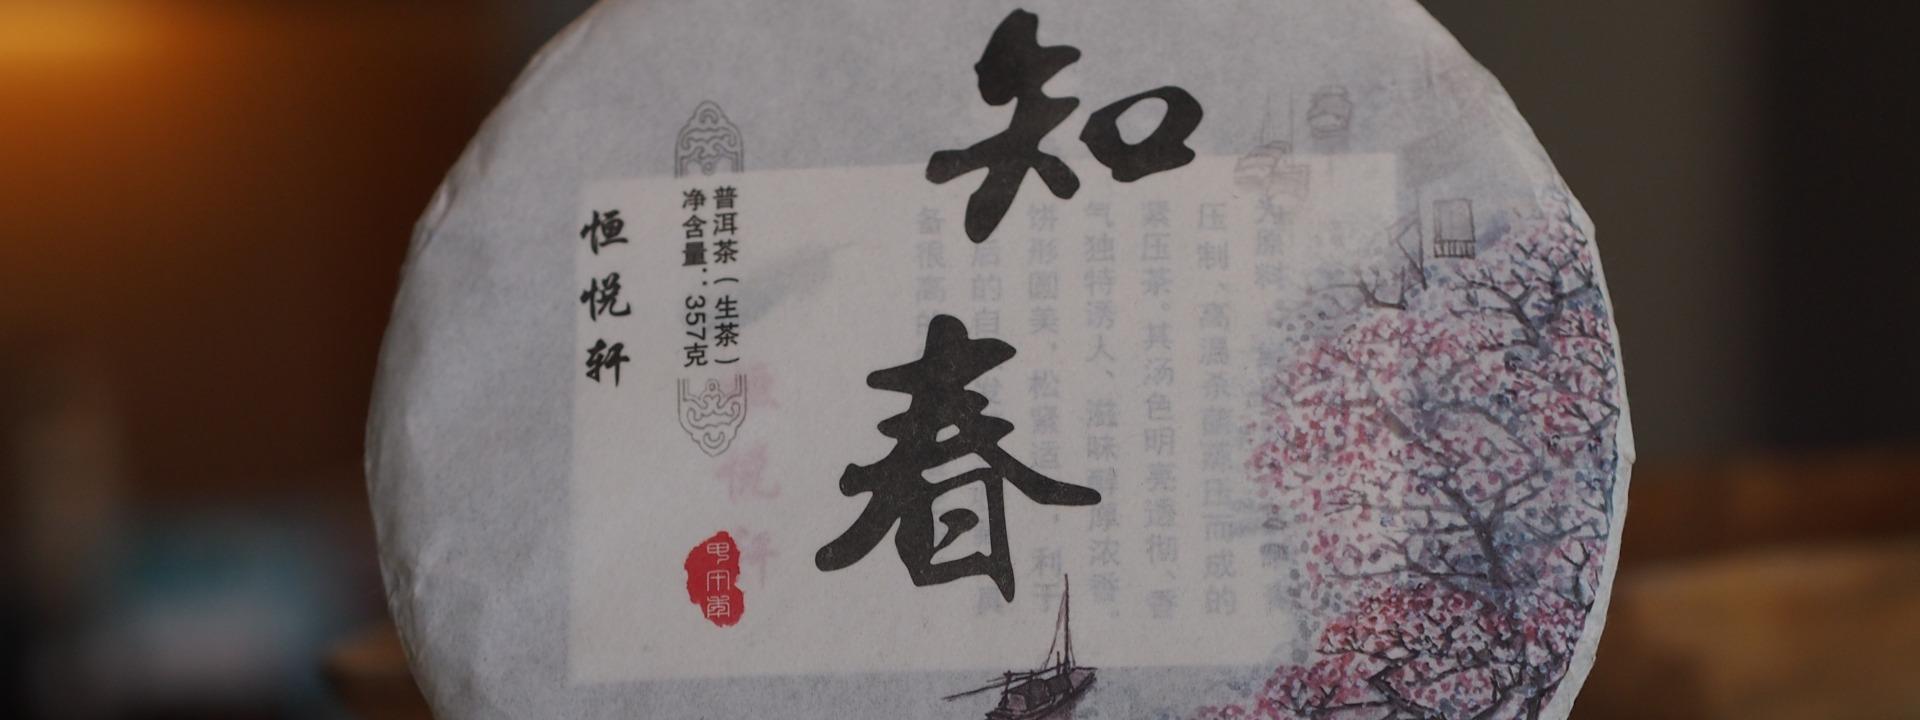 知春
普洱茶(生茶)
净含量：357克
恒悦轩
为原料
压制、高温蒸
压而成的
紧压茶。其汤色明亮透彻、香
气独特诱人、滋味醇厚浓香。
饼形圆美，松紧适
利于
后的自
备很高的
悦轩